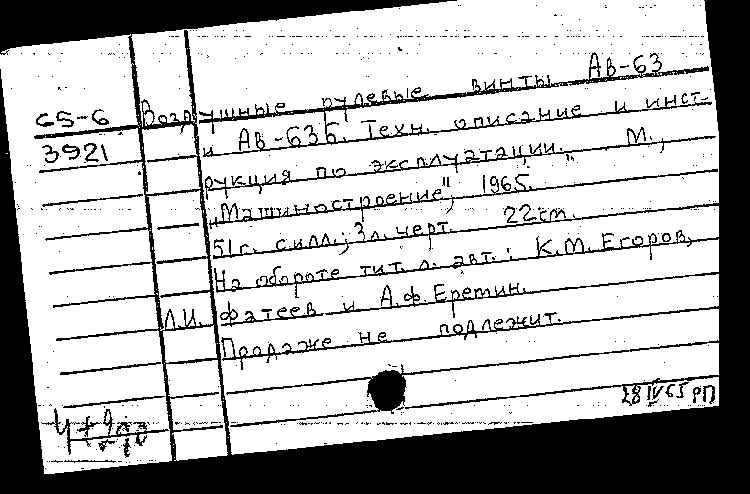 65-6 Воздушные рулевые винты Ав-63
3921 и Ав-63Б. Техн. описание и инст-
рукция по эксплуатации. М.,
„Машиностроение", 1965.
51 с. с илл.; 3 л. черт. 22 см.
На обороте тит. л. авт.: К.М. Егоров,
Л.И. Фатеев и А.Ф. Еретин.
Продаже не подлежит.
28 IV 65 РП